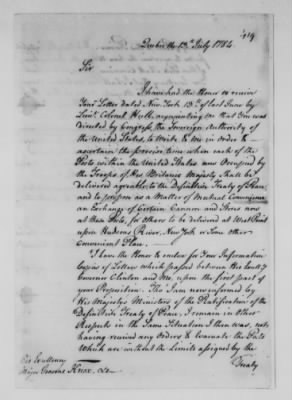 414
Quebec the 13th July 1784
Sir
I have had the Honor to receive
Your Letter dated New York 13th of last June by
Lieut. Colonel Hull, acquainting me that You was
directed by Congress, the Sovereign Authority of
the United States, to Write to me in order to
ascertain the precise time when each of the
Posts within the United States now Occupied by
the Troops of His Britanic Majesty shall be
delivered agreable to the Definitive Treaty of Peace,
and to propose as a Matter of Mutual Convenience
an Exchange of Certain Cannon and Stores now
at these Posts, for others to be delivered at West Point
upon Hudsons River, New York or Some other
Convenient Place.
I have the Honor to enclose for Your Information
Copies of Letters which passed between His Excell:y
Governor Clinton and Me, upon the first part of
your Proposition. Tho I am now informed by
His Majesty's Ministers of the Ratification of the
Definitive Treaty of Peace, I remain in other
Respects in the Same Situation I then was, not
having received any Orders to Evacuate the Posts
Which are without the Limits assigned by the
Treaty
His Excellency
Major General Knox. &c